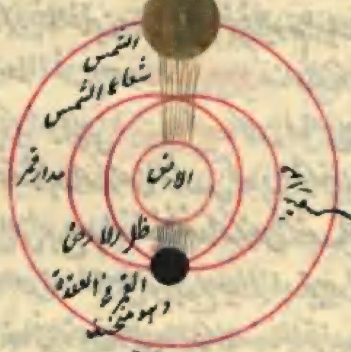 الشمس
شعاع الشمس
مدار قمر
الارض
ظل الارض
القمر في العقدة
وهو منخسف